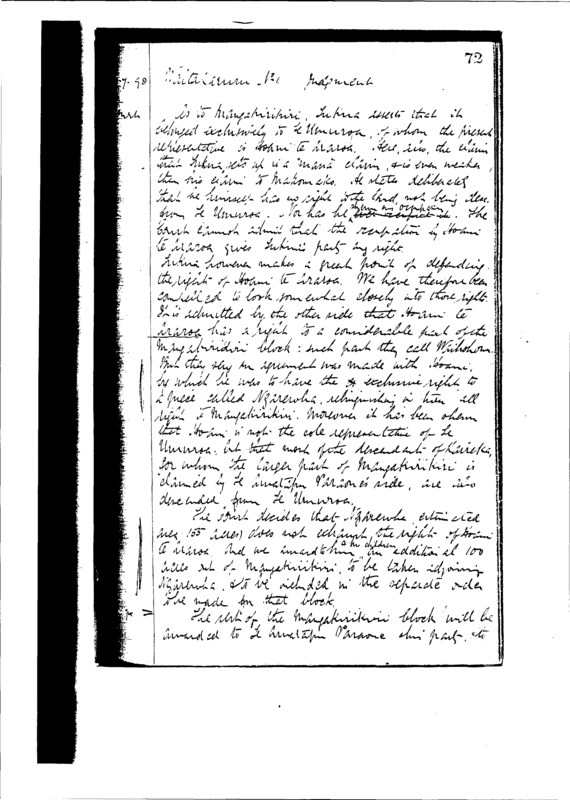 72
Judgment
As to Mangakirikiri, Tukua asserts that it
belonged exclusively to Te Umuroa, of whom the present
representative is Hoani te Araroa. Here, also, the claim
that Tukua sets up is a mana claim, & is even weaker
than his claim to He states deliberately
that he himself has no right to the land, not being desc.
from Te Umuroa. Nor has he any occupation. The
Court cannot admit that the occupation of Hoani
te Araroa gives Tukua's party any right.
Tukua however makes a great point of defending
the right of Hoani te Araroa. We have therefore been
compelled to look somewhat closely into those rights.
It is admitted by the other side that Hoani te
Araroa has a right to a considerable part of the
Mangakirikiri block: such part they call
But they say an agreement was made with Hoani,
by which he was to have the exclusive right to
a piece called Ngarewha, relinquishing in lieu all
right to Mangakirikiri. Moreover it has been shown
that Hoani is not the sole representative of Te
Umuroa, but that most of the descendants of
for whom the larger part of Mangakirikiri is
claimed by Te Awatapu Paraone's side, are also
descended from Te Umuroa.
The Court decides that Ngarewha estimated
area 155 acres, does not exhaust the rights of Hoani
te Araroa. And we award to him & his children an additional 100
acres out of Mangakirikiri, to be taken adjoining
Ngarewha, & to be included in the separate order
to be made for that block.
The rest of the Mangakirikiri block will be
awarded to Te Awatapu Paraone & his party, &c